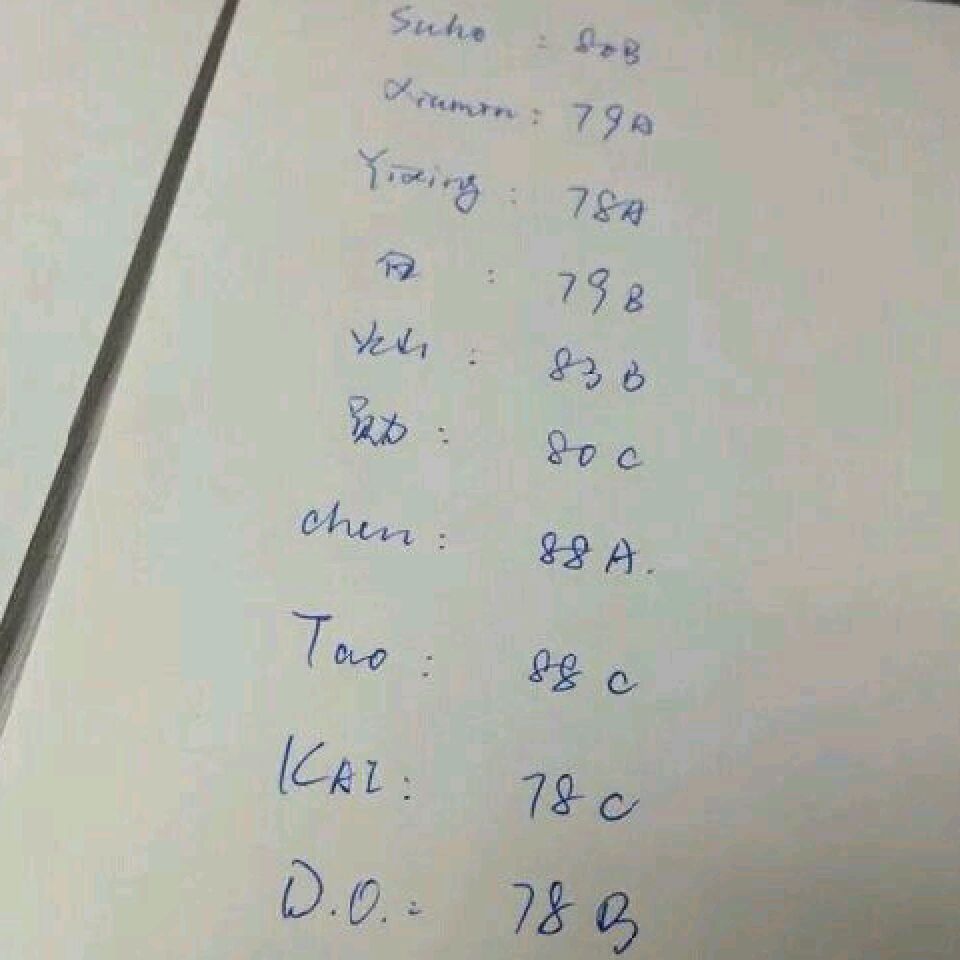 Suho : 80B
Xiumin : 79A
Yixing : 78A
: 79B
: 83B
勋 : 80C
chen : 88A.
Tao : 88C
KAI : 78C
D.O. : 78B